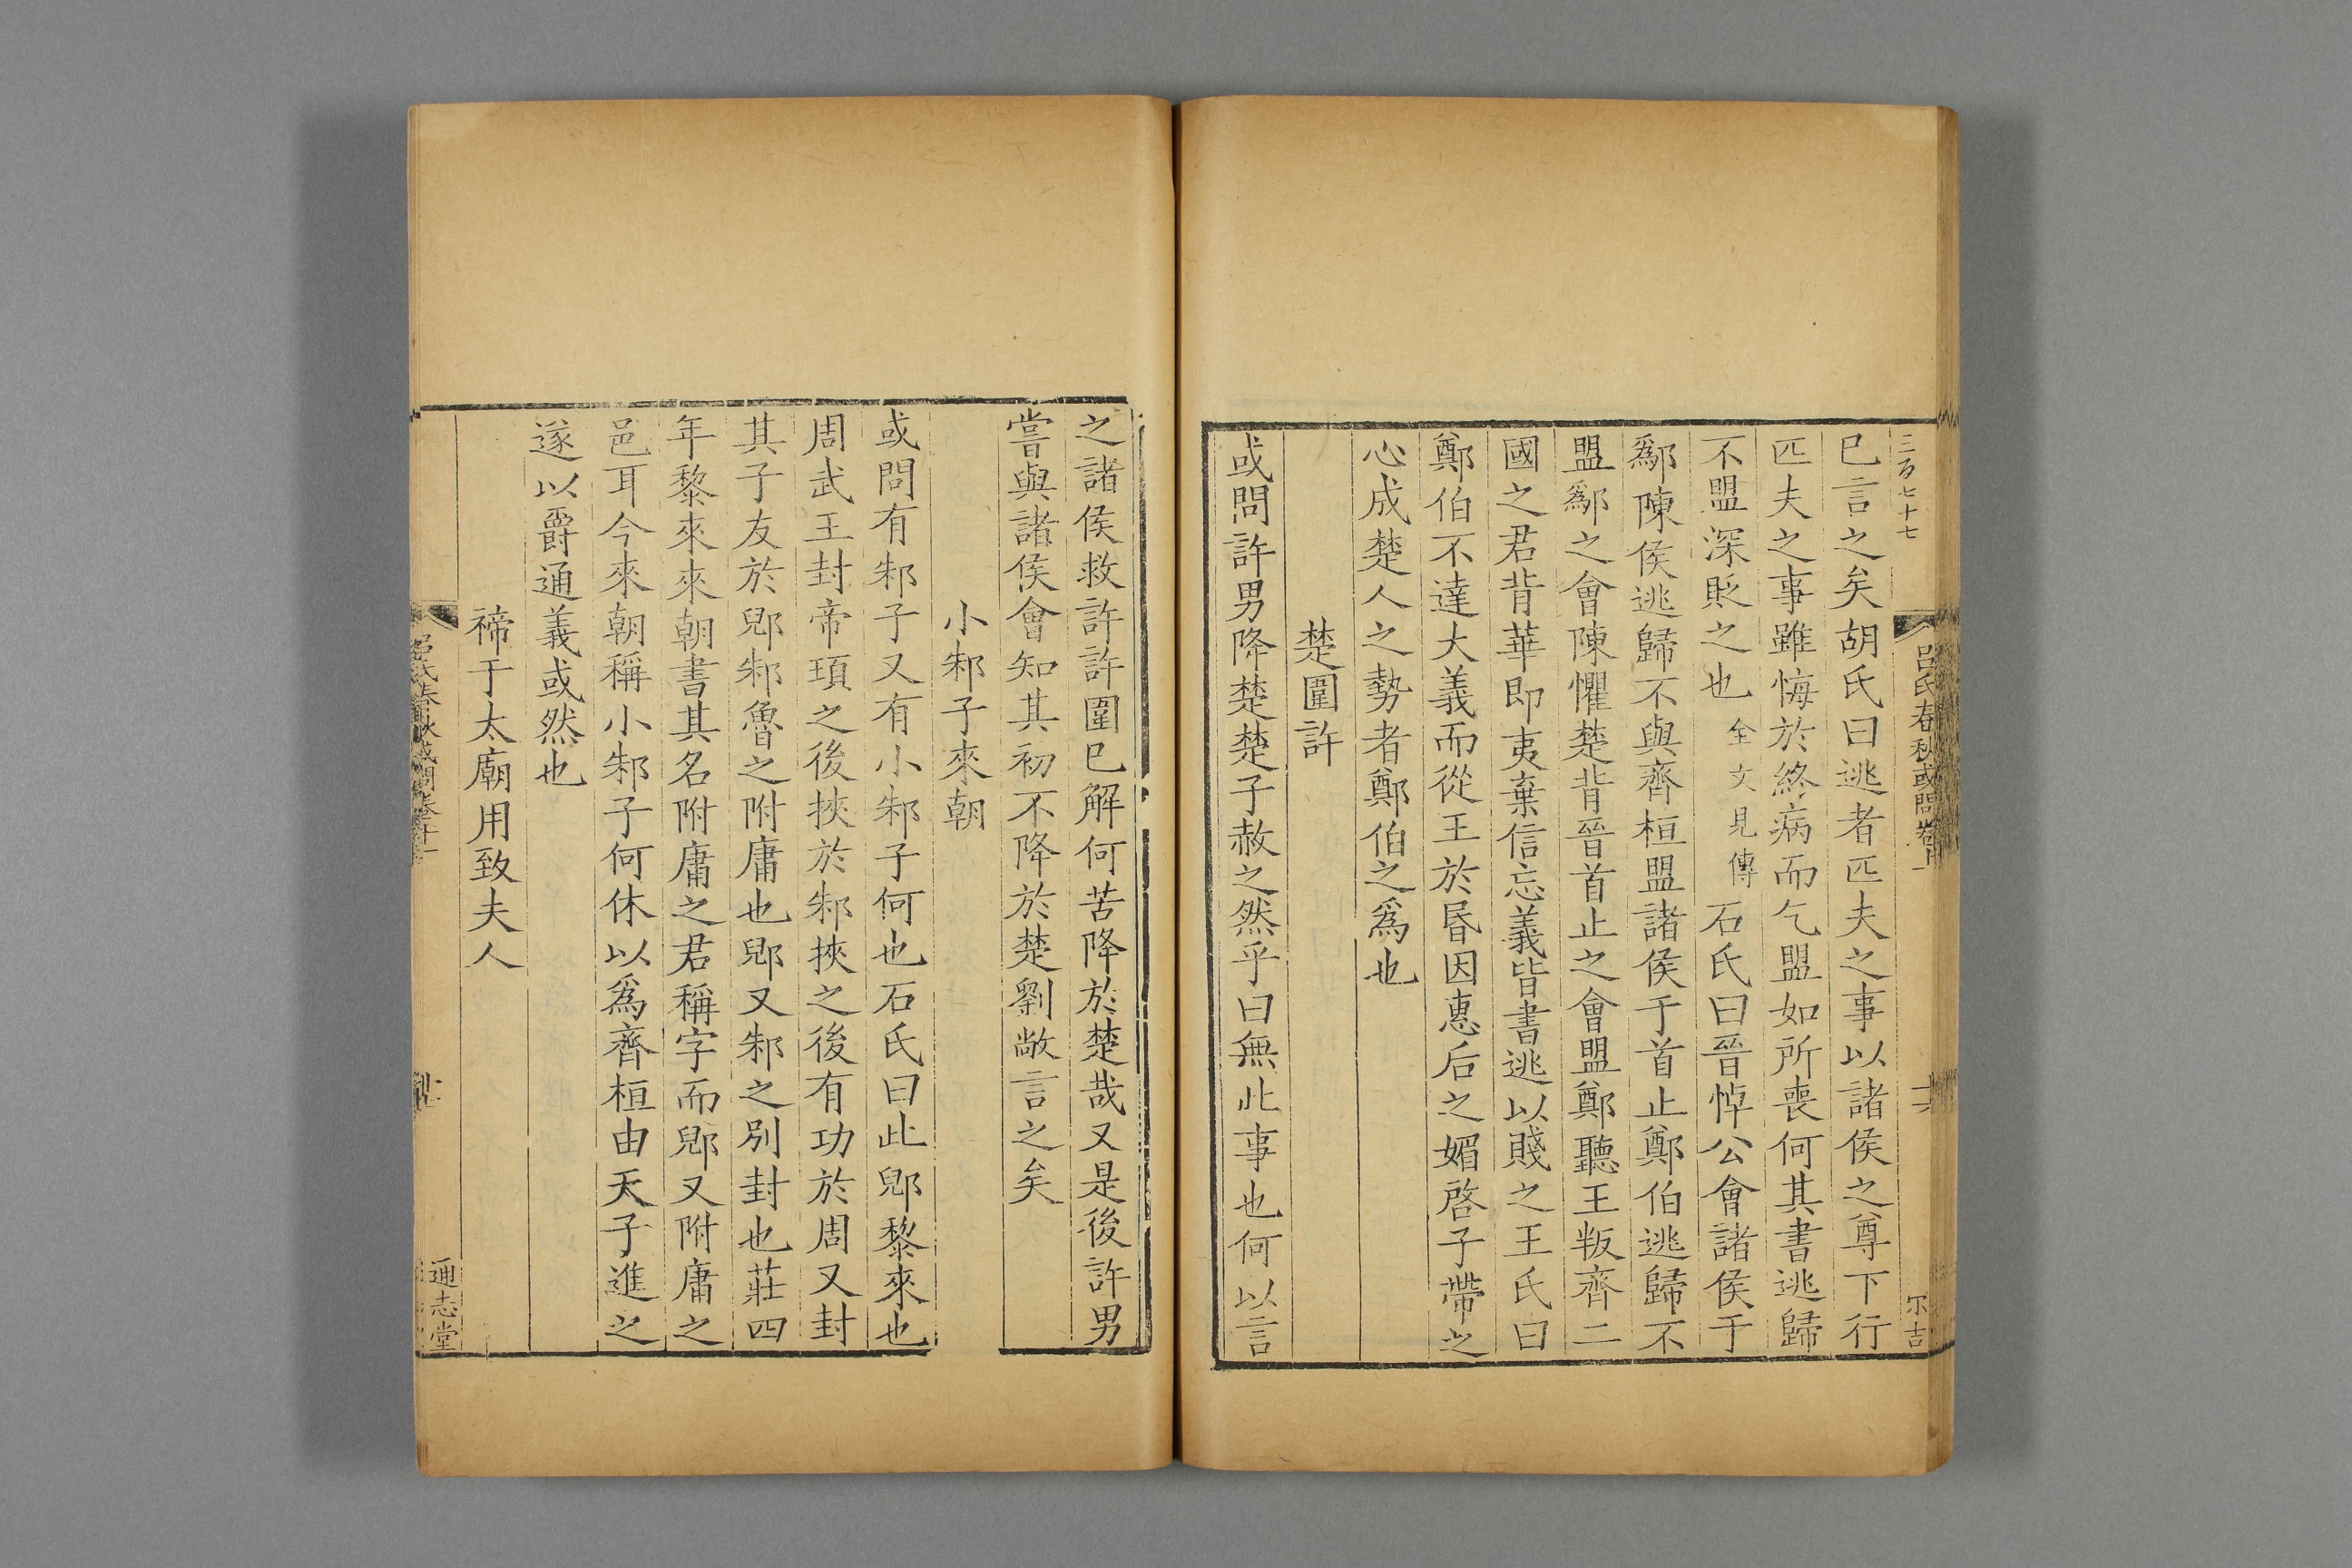 三百七十七
呂氏春秋或問卷十一
尔吉
已言之矣胡氏曰逃者匹夫之事以諸侯之尊下行
匹夫之事雖悔於終病而乞盟如所喪何其書逃歸
不盟深貶之也全文見傳石氏曰晉悼公會諸侯于
鄬陳侯逃歸不與齊桓盟諸侯于首止鄭伯逃歸不
盟鄬之會陳懼楚背晉首止之會盟鄭聽王叛齊二
國之君背華即夷棄信忘義皆書逃以賤之王氏曰
鄭伯不達大義而從王於昏因惠后之媚啓子帶之
心成楚人之勢者鄭伯之爲也
楚圍許
或問許男降楚楚子赦之然乎曰無此事也何以言
之諸侯救許許圍已解何苦降於楚哉又是後許男
嘗與諸侯會知其初不降於楚劉敞言之矣
小邾子來朝
或問有邾子又有小邾子何也石氏曰此郳黎來也
周武王封帝頊之後挾於邾挾之後有功於周又封
其子友於郳邾魯之附庸也郳又邾之別封也莊四
年黎來來朝書其名附庸之君稱字而郳又附庸之
邑耳今來朝稱小邾子何休以爲齊桓由天子進之
遂以爵通義或然也
禘于太廟用致夫人
呂氏春秋或問卷十一
通志堂